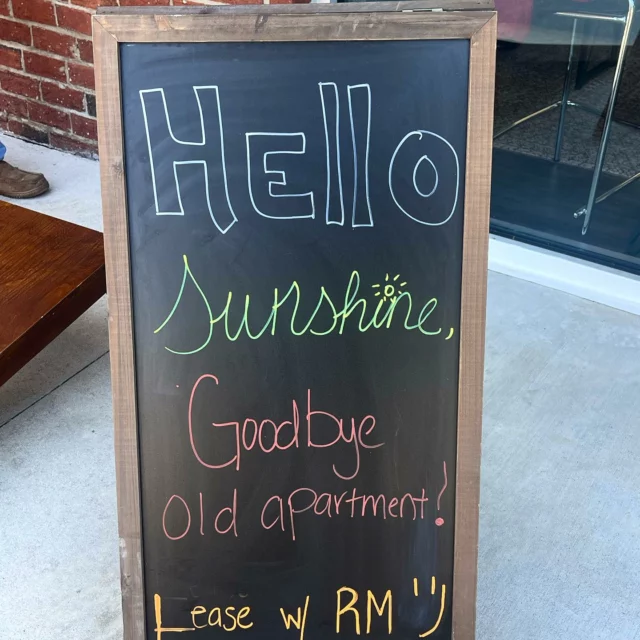 Hello
Sunshine,
Goodbye
old apartment!
Lease w/ RM ")